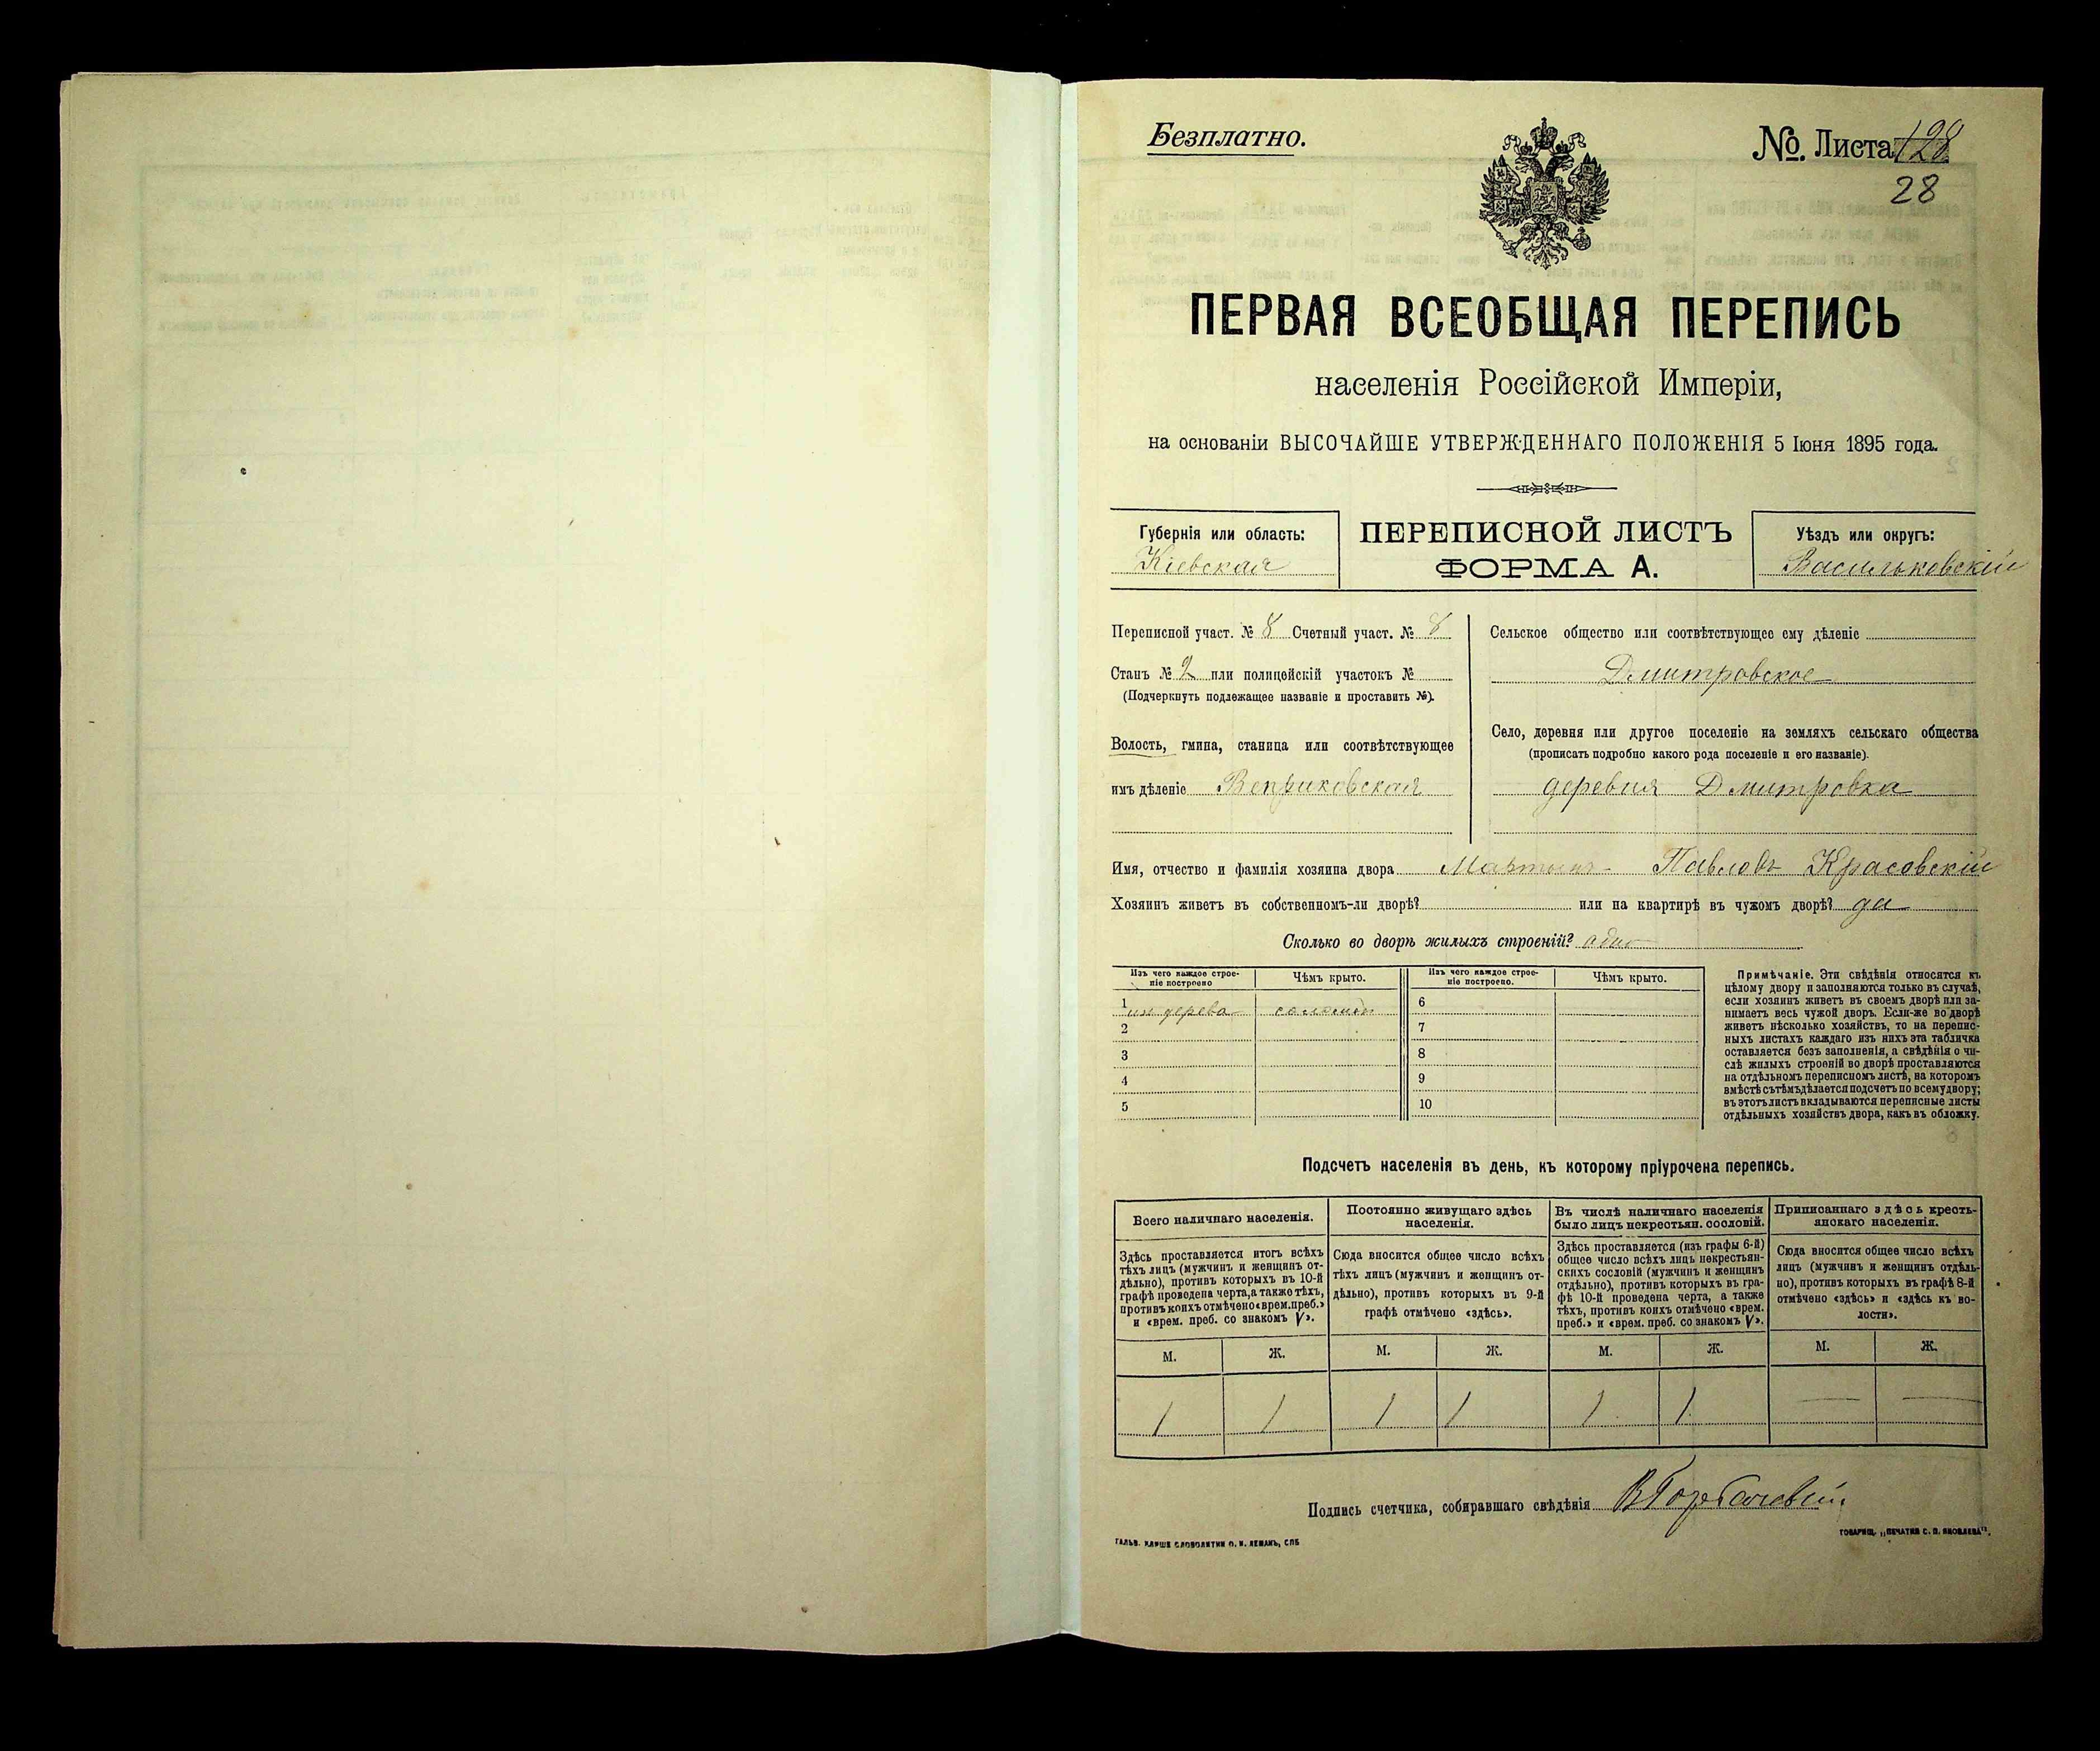 Безплатно.
№. Листа 128
28
ПЕРВАЯ ВСЕОБЩАЯ ПЕРЕПИСЬ
населенія Россійской Имперіи,
на основаніи ВЫСОЧАЙШЕ УТВЕРЖДЕННАГО ПОЛОЖЕНІЯ 5 Іюня 1895 года.
Губернія или область:
Кіевская
ПЕРЕПИСНОЙ ЛИСТЪ
ФОРМА А.
Уѣздъ или округъ:
Васильковскій
Переписной участ. № 8 Счетный участ. № 8
Станъ № 2 или полицейскій участокъ №
(Подчеркнуть подлежащее названіе и проставить №).
Волость, гмина, станица или соотвѣтствующее
имъ дѣленіе Веприковская
Сельское общество или соотвѣтствующее ему дѣленіе
Дмитровское
Село, деревня или другое поселеніе на земляхъ сельскаго общества
(прописать подробно какого рода поселеніе и его названіе).
деревня Дмитровка
Имя, отчество и фамилія хозяина двора Мартынъ Павловъ Красовскій
Хозяинъ живетъ въ собственномъ-ли дворѣ? или на квартирѣ въ чужомъ дворѣ? да
Сколько во дворѣ жилыхъ строеній? одно
Изъ чего каждое строе-
ніе построено
Чѣмъ крыто.
Изъ чего каждое строе-
ніе построено.
Чѣмъ крыто.
1 изъ дерева соломой 6
2 7
3 8
4 9
5 10
Примѣчаніе. Эти свѣдѣнія относятся къ
цѣлому двору и заполняются только въ случаѣ,
если хозяинъ живетъ въ своемъ дворѣ или за-
нимаетъ весь чужой дворъ. Если-же во дворѣ
живетъ нѣсколько хозяйствъ, то на перепис-
ныхъ листахъ каждаго изъ нихъ эта табличка
оставляется безъ заполненія, а свѣдѣнія о чи-
слѣ жилыхъ строеній во дворѣ проставляются
на отдѣльномъ переписномъ листѣ, на которомъ
вмѣстѣ съ тѣмъ дѣлается подсчетъ по всему двору;
въ этотъ листъ вкладываются переписные листы
отдѣльныхъ хозяйствъ двора, какъ въ обложку.
Подсчетъ населенія въ день, къ которому пріурочена перепись.
Всего наличнаго населенія.
Здѣсь проставляется итогъ всѣхъ
тѣхъ лицъ (мужчинъ и женщинъ от-
дѣльно), противъ которыхъ въ 10-й
графѣ проведена черта, а также тѣхъ,
противъ коихъ отмѣчено «врем. преб.»
и «врем. преб. со знакомъ V».
Постоянно живущаго здѣсь
населенія.
Сюда вносится общее число всѣхъ
тѣхъ лицъ (мужчинъ и женщинъ от-
дѣльно), противъ которыхъ въ 9-й
графѣ отмѣчено «здѣсь».
Въ числѣ наличнаго населенія
было лицъ некрестьян. сословій.
Здѣсь проставляется (изъ графы 6-й)
общее число всѣхъ лицъ некрестьян-
скихъ сословій (мужчинъ и женщинъ
отдѣльно), противъ которыхъ въ гра-
фѣ 10-й проведена черта, а также
тѣхъ, противъ коихъ отмѣчено «врем.
преб.» и «врем. преб. со знакомъ V».
Приписаннаго здѣсь кресть-
янскаго населенія.
Сюда вносится общее число всѣхъ
лицъ (мужчинъ и женщинъ отдѣль-
но), противъ которыхъ въ графѣ 8-й
отмѣчено «здѣсь» и «здѣсь къ во-
лости».
М. Ж. М. Ж. М. Ж. М. Ж.
1 1 1 1 1 1 — —
Подпись счетчика, собиравшаго свѣдѣнія
ГАЛЬВ. КЛИШЕ СЛОВОЛИТНИ О. И. ЛЕМАНЪ, СПБ
ТОВАРИЩ. „ПЕЧАТНЯ С. П. ЯКОВЛЕВА".